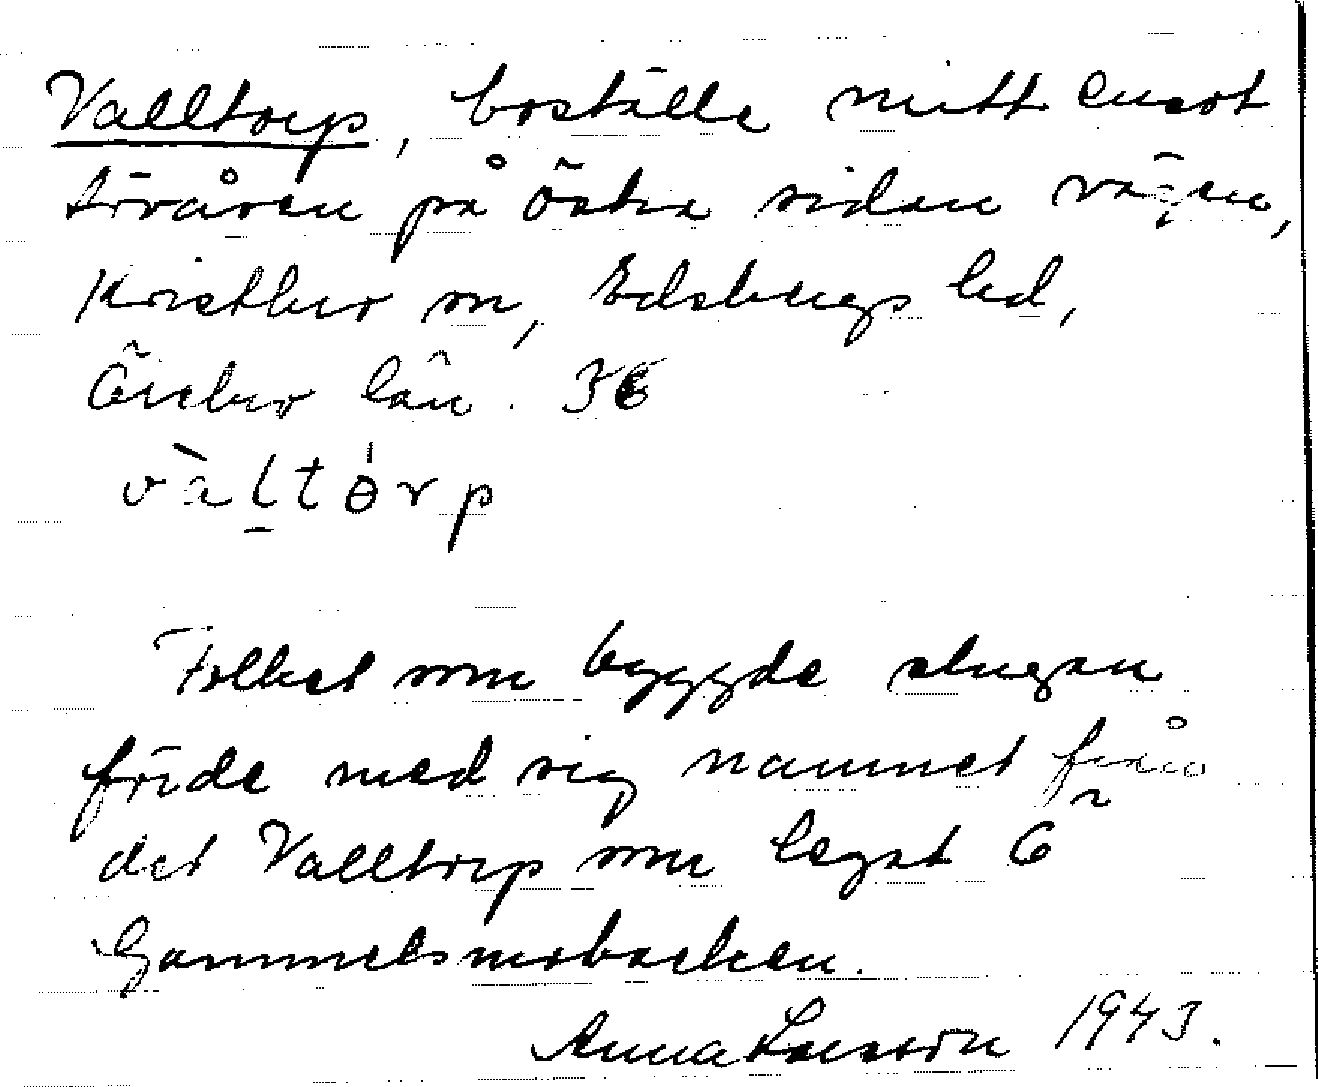 Valltorp, boställe mitt emot
Åvåsen på östra sidan vägen,
Kvistbro sn, Edsbergs hd,
Örebro län. 36
vàltórp
Folket som byggde stugan
förde med sig namnet från
det Valltorp som legat Ö
Gammelsmobacken.
Anna Larsson 1943.